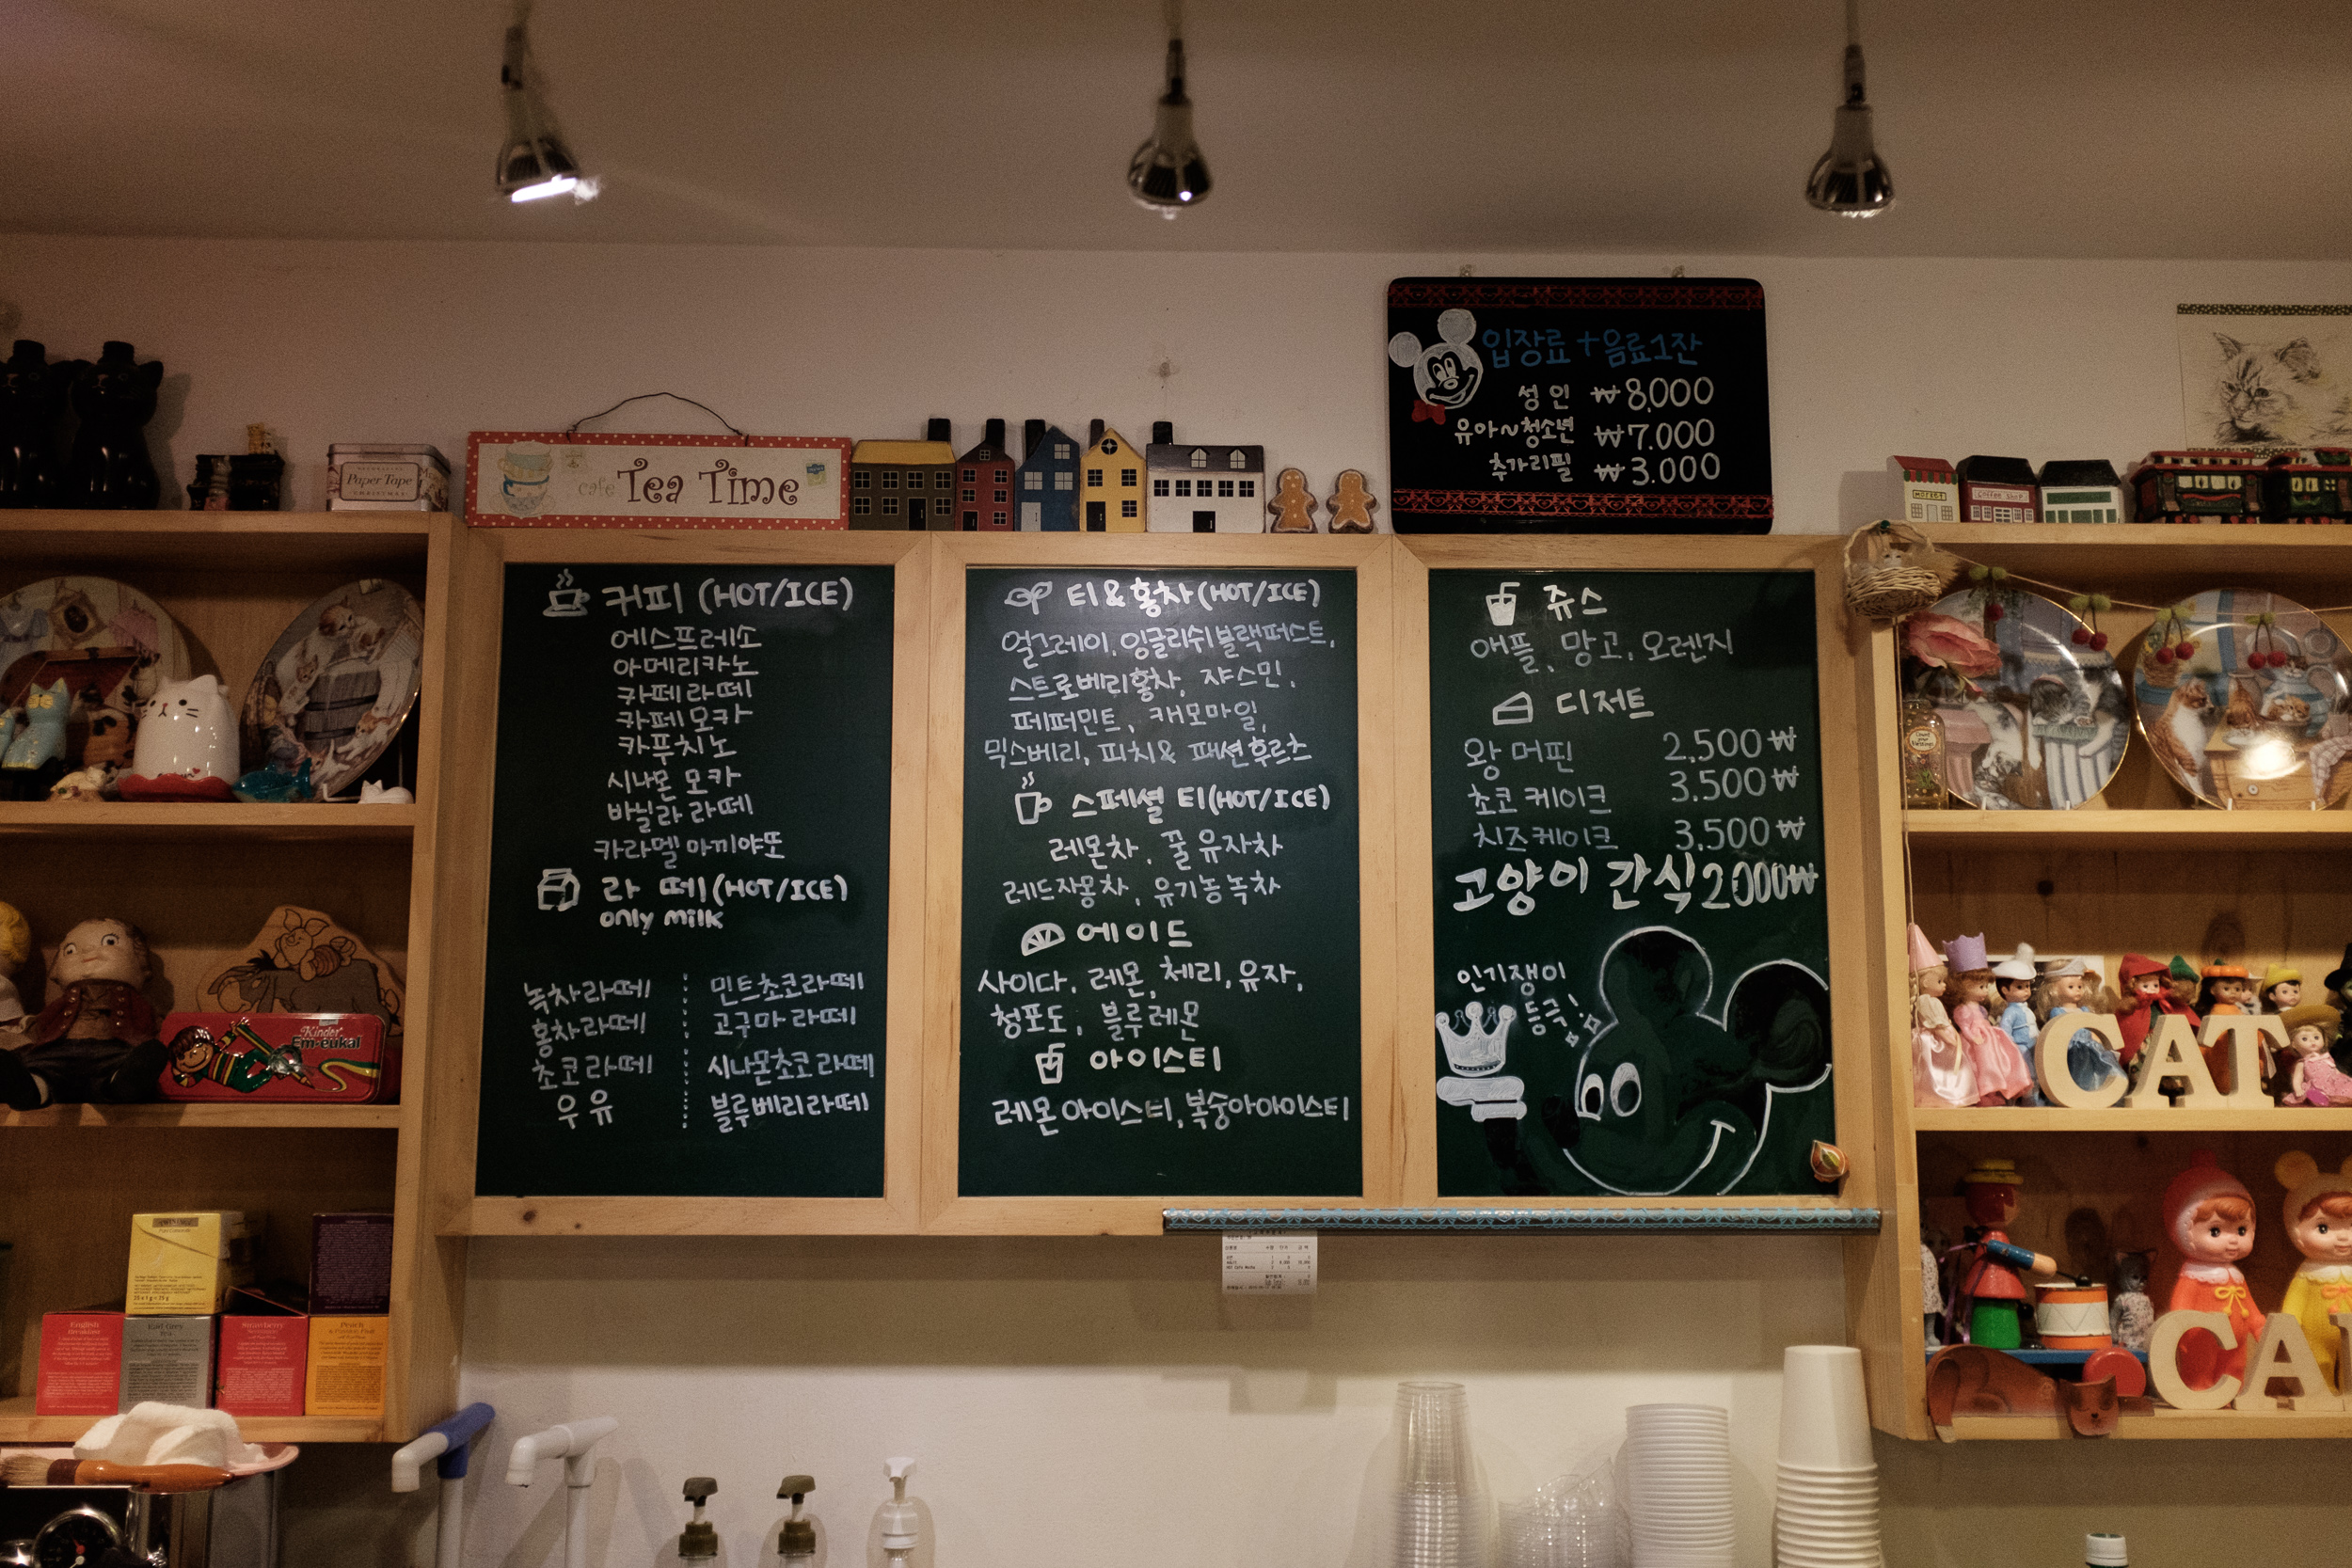 입장료+음료1잔
성인 ₩8,000
유아~청소년 ₩7,000
추가리필 ₩3,000
Paper Tape
CHRISTMAS
cafe Tea Time
MARKET
Coffee Shop
커피 (HOT/ICE)
에스프레소
아메리카노
카페라떼
카페모카
카푸치노
시나몬 모카
바닐라 라떼
카라멜 마끼야또
라 떼 (HOT/ICE)
only milk
녹차라떼
홍차라떼
초코라떼
우유
민트초코라떼
고구마라떼
시나몬초코라떼
블루베리라떼
티&홍차(HOT/ICE)
얼그레이, 잉글리쉬블랙퍼스트,
스트로베리홍차, 쟈스민,
페퍼민트, 캐모마일,
믹스베리, 피치& 패션후르츠
스페셜 티(HOT/ICE)
레몬차, 꿀유자차
레드자몽차, 유기농녹차
에이드
사이다, 레몬, 체리, 유자,
청포도, 블루레몬
아이스티
레몬아이스티, 복숭아아이스티
쥬스
애플, 망고, 오렌지
디저트
왕머핀 2,500₩
초코케이크 3,500₩
치즈케이크 3,500₩
고양이 간식2000₩
인기쟁이
등극!
Kinder
Em-eukal
English
Breakfast
Earl Grey
Strawberry
Peach
CAT
CA